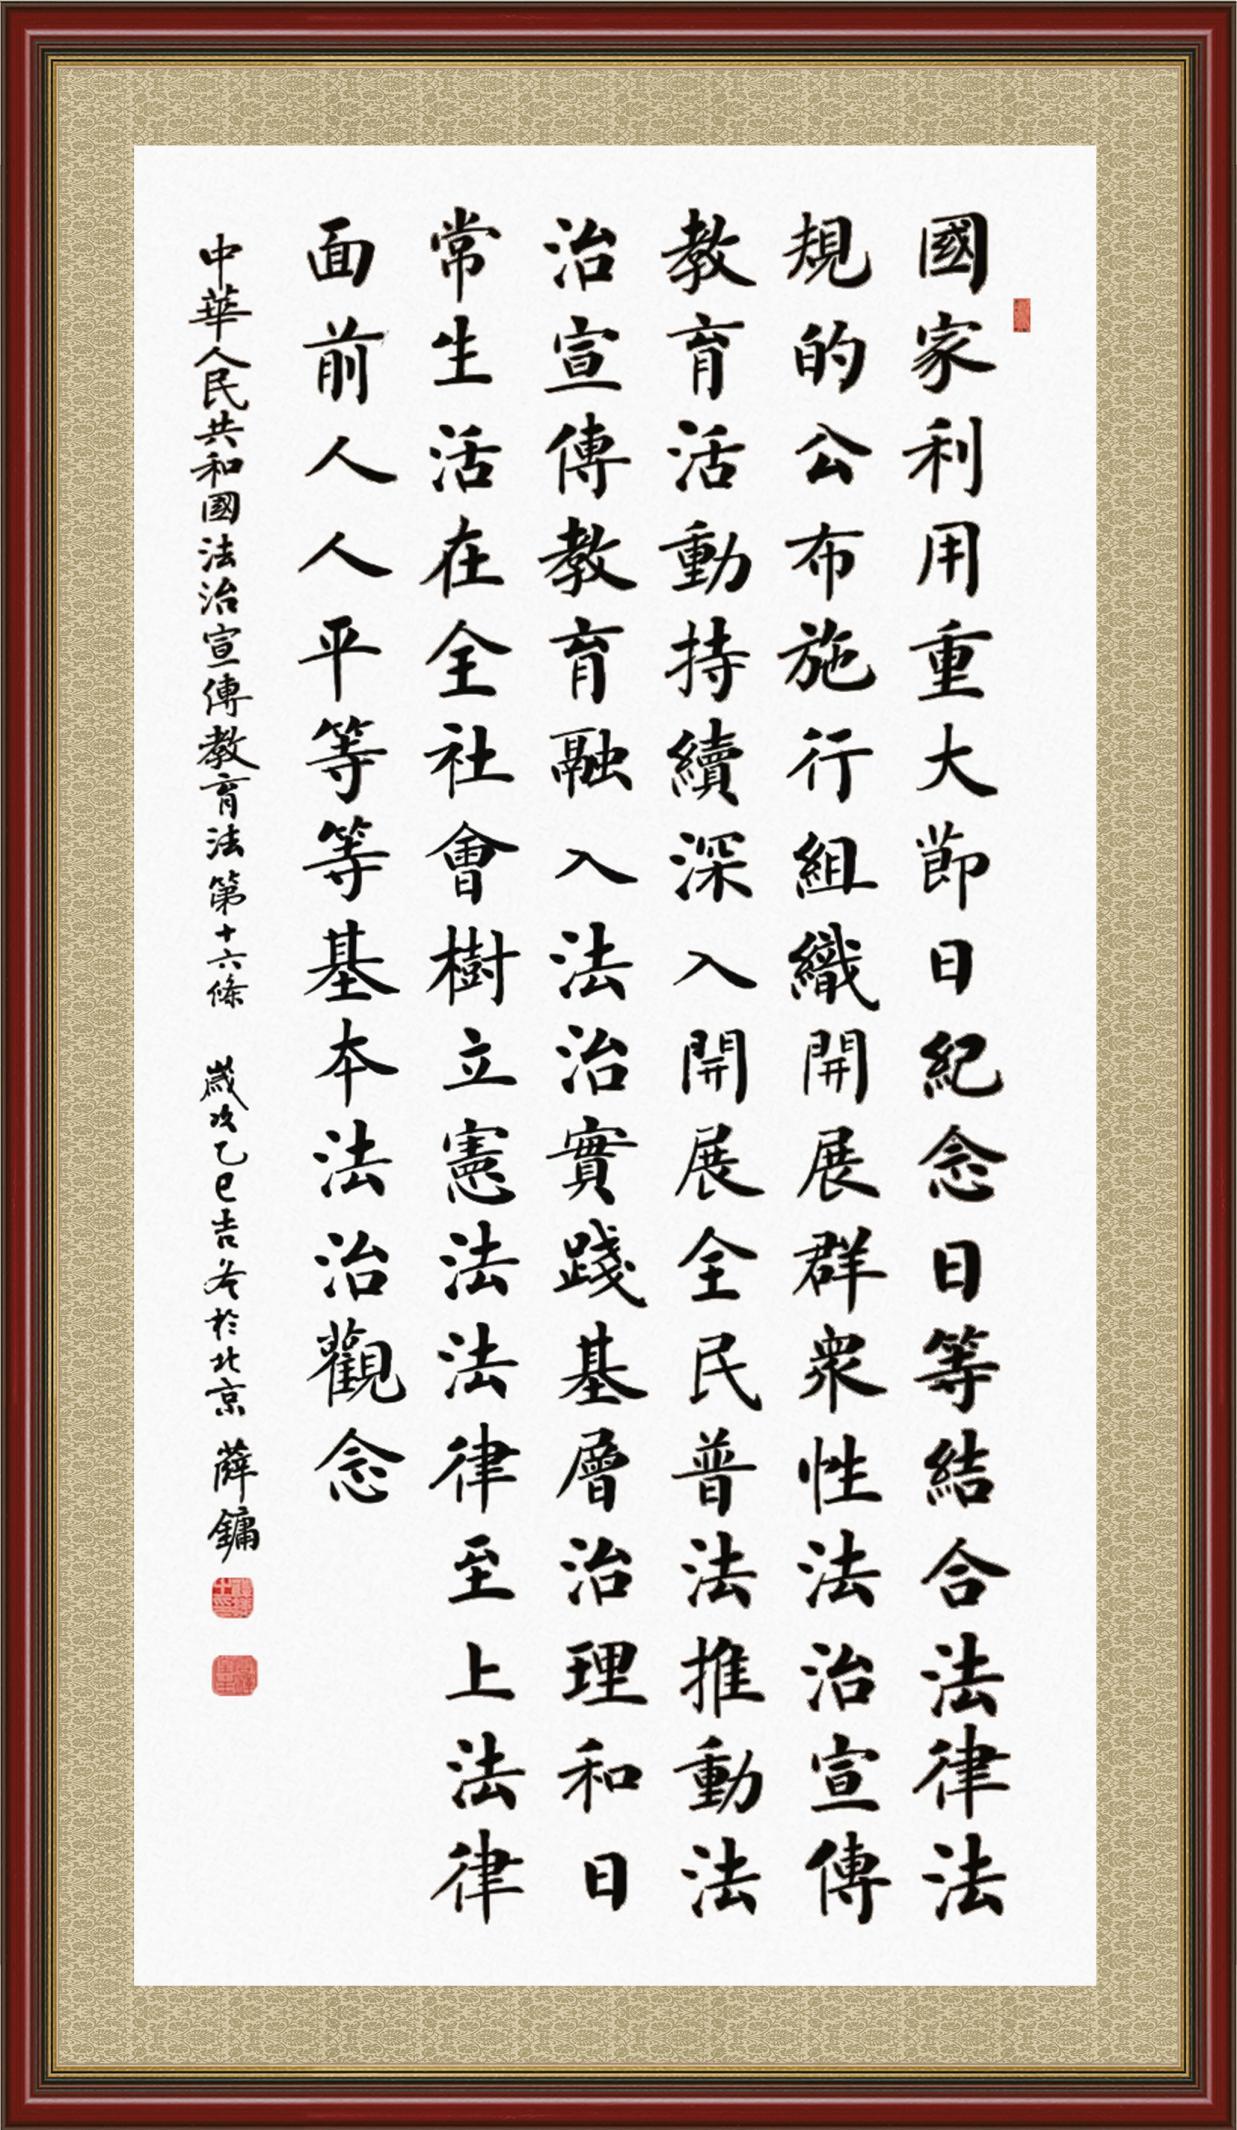 國家利用重大節日紀念日等結合法律法
規的公布施行組織開展群衆性法治宣傳
教育活動持續深入開展全民普法推動法
治宣傳教育融入法治實踐基層治理和日
常生活在全社會樹立憲法法律至上法律
面前人人平等等基本法治觀念
中華人民共和國法治宣傳教育法第十六條 歲次乙巳吉冬於北京 薛鏞